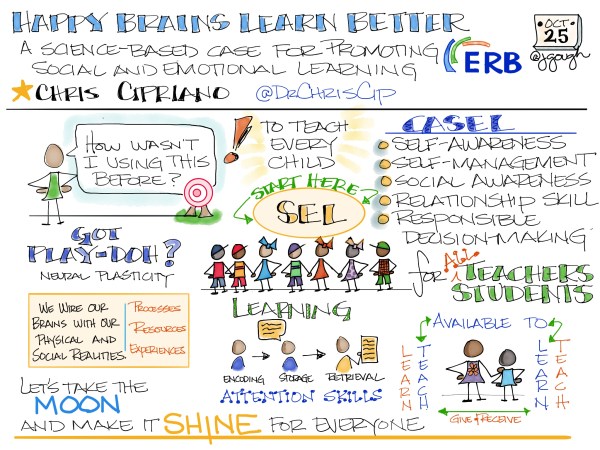 HAPPY BRAINS LEARN BETTER
A SCIENCE-BASED CASE FOR PROMOTING
SOCIAL AND EMOTIONAL LEARNING
ERB
OCT
25
@jgough
CHRIS CIPRIANO @DRCHRISCIP
HOW WASN'T
I USING THIS
BEFORE?
! TO TEACH
EVERY
CHILD
START HERE
SEL
CASEL
SELF-AWARENESS
SELF-MANAGEMENT
SOCIAL AWARENESS
RELATIONSHIP SKILL
RESPONSIBLE
DECISION-MAKING
for ALL TEACHERS
STUDENTS
GOT
PLAY-DOH?
NEURAL PLASTICITY
WE WIRE OUR
BRAINS WITH OUR
PHYSICAL AND
SOCIAL REALITIES.
PROCESSES
RESOURCES
EXPERIENCES
LEARNING
ENCODING STORAGE RETRIEVAL
ATTENTION SKILLS
AVAILABLE TO
LEARN
TEACH
LEARN
TEACH
GIVE & RECEIVE
LET'S TAKE THE
MOON
AND MAKE IT SHINE FOR EVERYONE